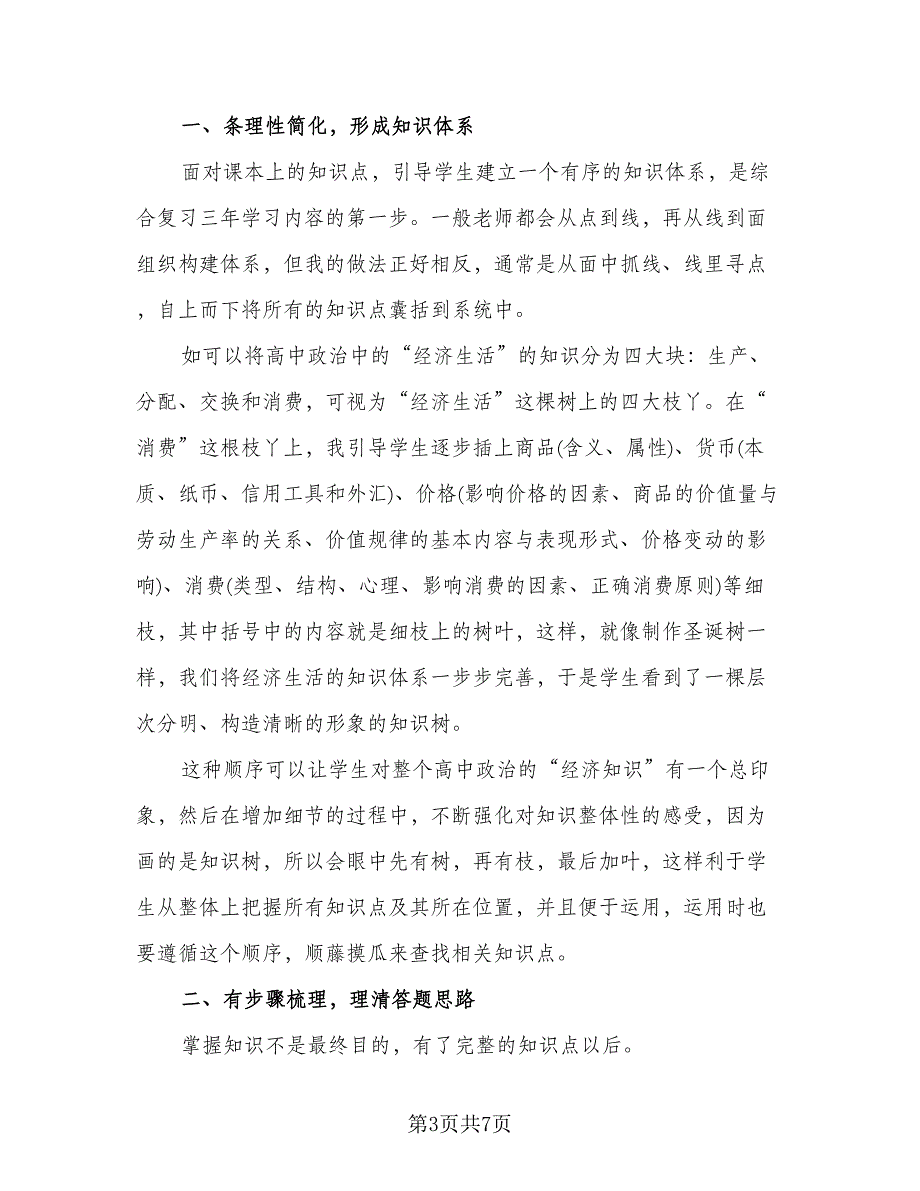 一、条理性简化，形成知识体系
面对课本上的知识点，引导学生建立一个有序的知识体系，是综
合复习三年学习内容的第一步。一般老师都会从点到线，再从线到面
组织构建体系，但我的做法正好相反，通常是从面中抓线、线里寻点
，自上而下将所有的知识点囊括到系统中。
如可以将高中政治中的“经济生活”的知识分为四大块：生产、
分配、交换和消费，可视为“经济生活”这棵树上的四大枝丫。在“
消费”这根枝丫上，我引导学生逐步插上商品(含义、属性)、货币(本
质、纸币、信用工具和外汇)、价格(影响价格的因素、商品的价值量与
劳动生产率的关系、价值规律的基本内容与表现形式、价格变动的影
响)、消费(类型、结构、心理、影响消费的因素、正确消费原则)等细
枝，其中括号中的内容就是细枝上的树叶，这样，就像制作圣诞树一
样，我们将经济生活的知识体系一步步完善，于是学生看到了一棵层
次分明、构造清晰的形象的知识树。
这种顺序可以让学生对整个高中政治的“经济知识”有一个总印
象，然后在增加细节的过程中，不断强化对知识整体性的感受，因为
画的是知识树，所以会眼中先有树，再有枝，最后加叶，这样利于学
生从整体上把握所有知识点及其所在位置，并且便于运用，运用时也
要遵循这个顺序，顺藤摸瓜来查找相关知识点。
二、有步骤梳理，理清答题思路
掌握知识不是最终目的，有了完整的知识点以后。
第3页共7页